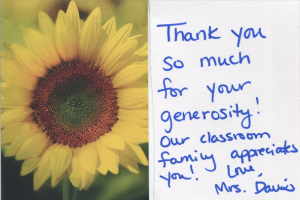 Thank you
so much
for your
generosity!
Our classroom
family appreciates
you! Love,
Mrs. Davis